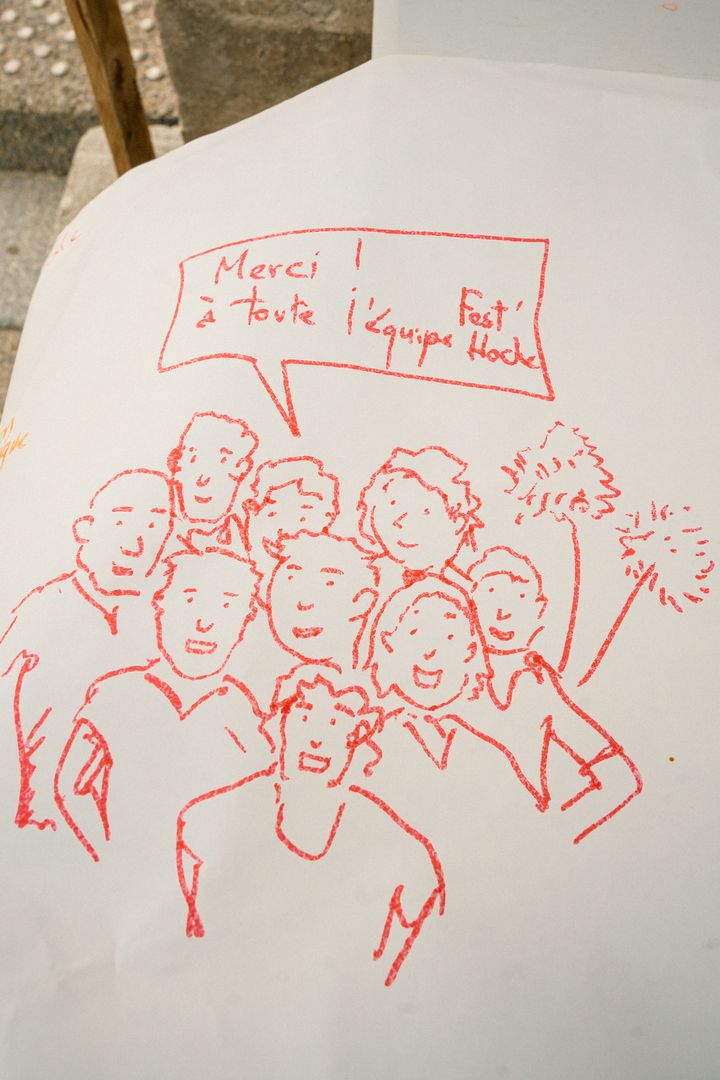 Merci !
à toute l'équipe Fest'
Hoche